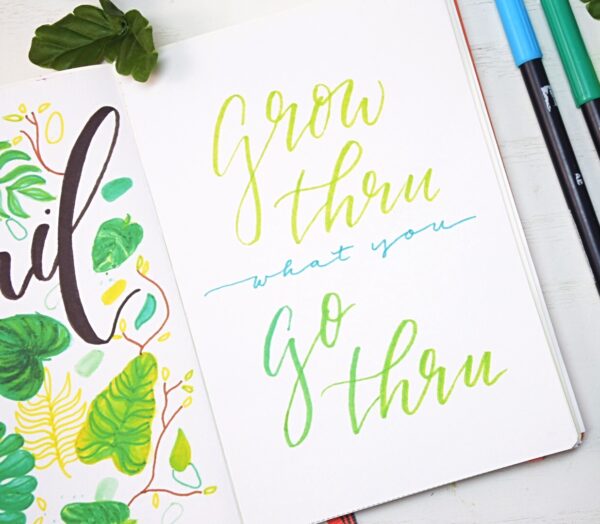 Grow
thru
what you
Go
thru